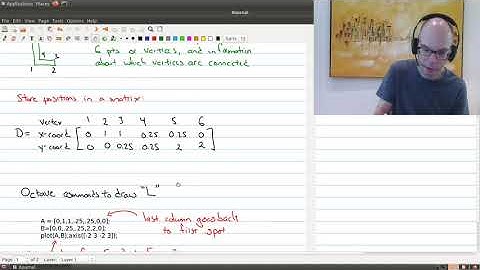 Applications Places
Xournal
File Edit View Journal Tools Options Help
6 pts or vertices, and information
about which vertices are connected
4 3
1 2
Store positions in a matrix:
vertex 1 2 3 4 5 6
D= x-coord 0 1 1 0.25 0.25 0
y-coord 0 0 0.25 0.25 2 2
Octave commands to draw "L"
A = [0,1,1,.25,.25,0,0];
B=[0,0,.25,.25,2,2,0];
plot(A,B);axis([-2 3 -2 3]);
last column goes back
to first spot
Page 1 of 2 Layer: Layer 1
Xournal